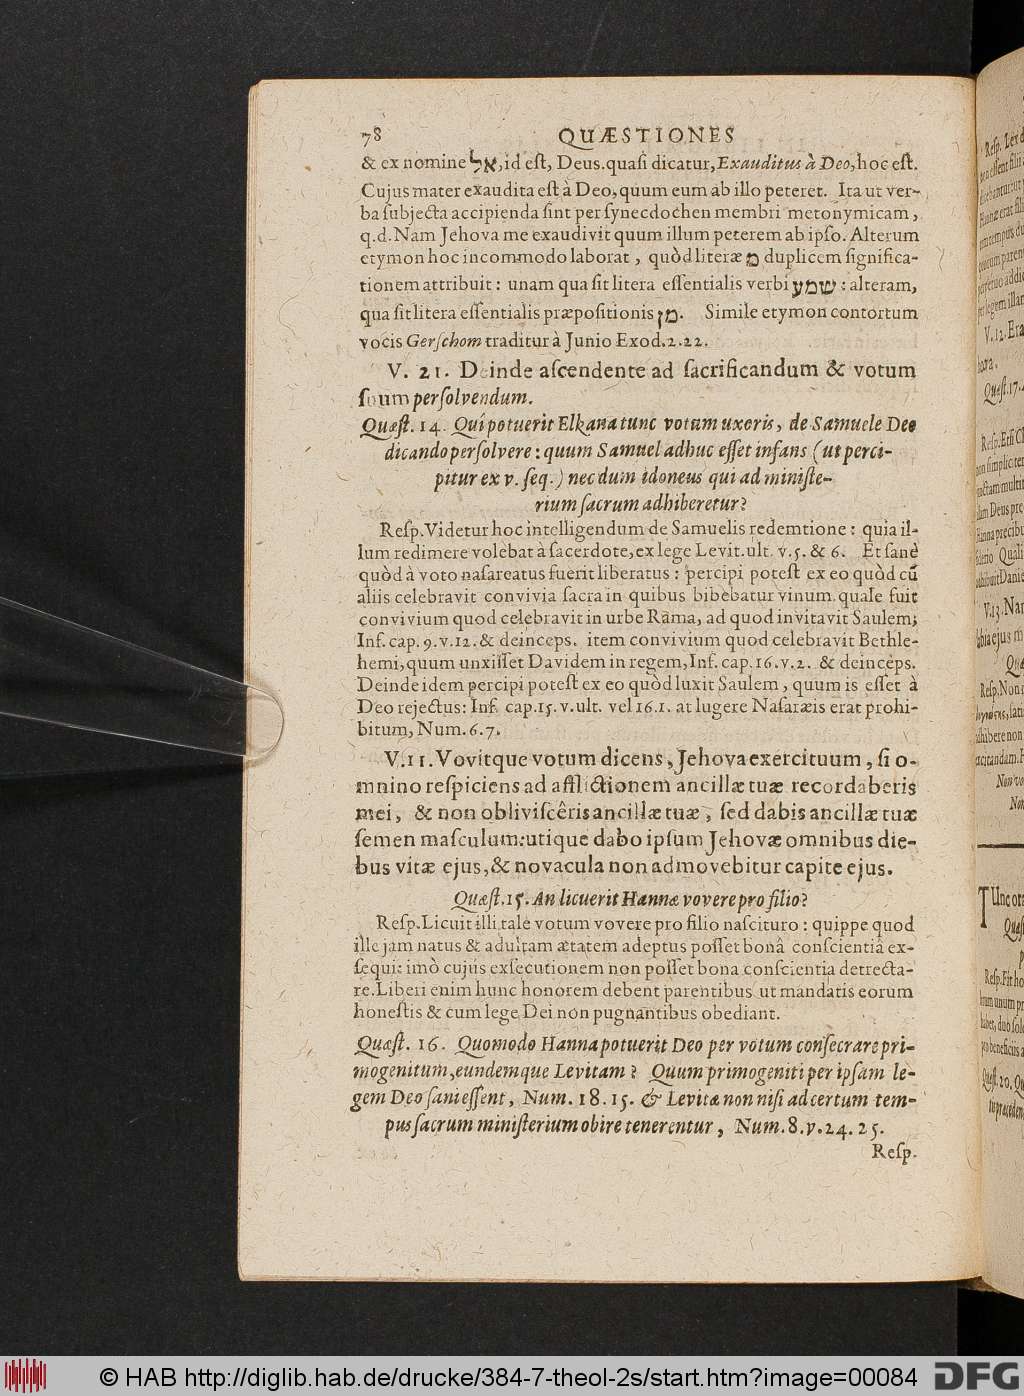 78 QUÆSTIONES
& ex nomine אל, id eſt, Deus. quaſi dicatur, Exauditus à Deo, hoc eſt.
Cujus mater exaudita eſt à Deo, quum eum ab illo peteret. Ita ut ver-
ba ſubjecta accipienda ſint per ſynecdochen membri metonymicam,
q.d. Nam Jehova me exaudivit quum illum peterem ab ipſo. Alterum
etymon hoc incommodo laborat, quòd literæ מ duplicem ſignifica-
tionem attribuit: unam qua ſit litera eſſentialis verbi שמע: alteram,
qua ſit litera eſſentialis præpoſitionis מן. Simile etymon contortum
vocis Gerſchom traditur à Junio Exod.2.22.
V. 21. Deinde aſcendente ad ſacrificandum & votum
ſuum perſolvendum.
Quæſt. 14. Quî potuerit Elkana tunc votum uxoris, de Samuele Deo
dicando perſolvere: quum Samuel adhuc eſſet infans (ut perci-
pitur ex v. ſeq.) nec dum idoneus qui ad miniſte-
rium ſacrum adhiberetur?
Reſp. Videtur hoc intelligendum de Samuelis redemtione: quia il-
lum redimere volebat à ſacerdote, ex lege Levit. ult. v.5. & 6. Et ſanè
quòd à voto naſareatus fuerit liberatus: percipi poteſt ex eo quòd cũ
aliis celebravit convivia ſacra in quibus bibebatur vinum. quale fuit
convivium quod celebravit in urbe Rama, ad quod invitavit Saulem;
Inf. cap. 9. v.12. & deinceps. item convivium quod celebravit Bethle-
hemi, quum unxiſſet Davidem in regem, Inf. cap. 16. v.2. & deinceps.
Deinde idem percipi poteſt ex eo quòd luxit Saulem, quum is eſſet à
Deo rejectus: Inf. cap.15. v.ult. vel 16.1. at lugere Naſaræis erat prohi-
bitum, Num. 6.7.
V.11. Vovitque votum dicens, Jehova exercituum, ſi o-
mnino reſpiciens ad afflictionem ancillæ tuæ recordaberis
mei, & non obliviſcêris ancillæ tuæ, ſed dabis ancillæ tuæ
ſemen maſculum: utique dabo ipſum Jehovæ omnibus die-
bus vitæ ejus, & novacula non admovebitur capite ejus.
Quæſt. 15. An licuerit Hannæ vovere pro filio?
Reſp. Licuit illi tale votum vovere pro filio naſcituro: quippe quod
ille jam natus & adultam ætatem adeptus poſſet bonâ conſcientiâ ex-
ſequi: imò cujus exſecutionem non poſſet bona conſcientia detrecta-
re. Liberi enim hunc honorem debent parentibus ut mandatis eorum
honeſtis & cum lege Dei non pugnantibus obediant.
Quæſt. 16. Quomodo Hanna potuerit Deo per votum conſecrare pri-
mogenitum, eundemque Levitam? Quum primogeniti per ipſam le-
gem Deo ſani eſſent, Num. 18. 15. & Levitæ non niſi ad certum tem-
pus ſacrum miniſterium obire tenerentur, Num. 8. v. 24. 25.
Reſp.
© HAB http://diglib.hab.de/drucke/384-7-theol-2s/start.htm?image=00084
DFG